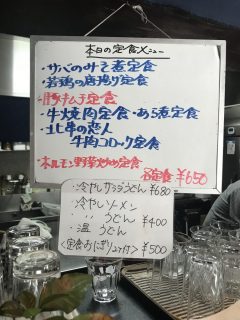 本日の定食メニュー
・サバのみそ煮定食
・若鶏の唐揚り定食
・豚キムチ定食
・牛焼肉定食・あら煮定食
・北辛の恋人
牛肉コロック定食
・ホルモン野菜炒め定食
各定食 ¥650
・冷やしサラダうどん ¥680
・冷やしソーメン
・〃 うどん ¥400
・温 うどん
<定食おにぎり2ケ付> ¥500